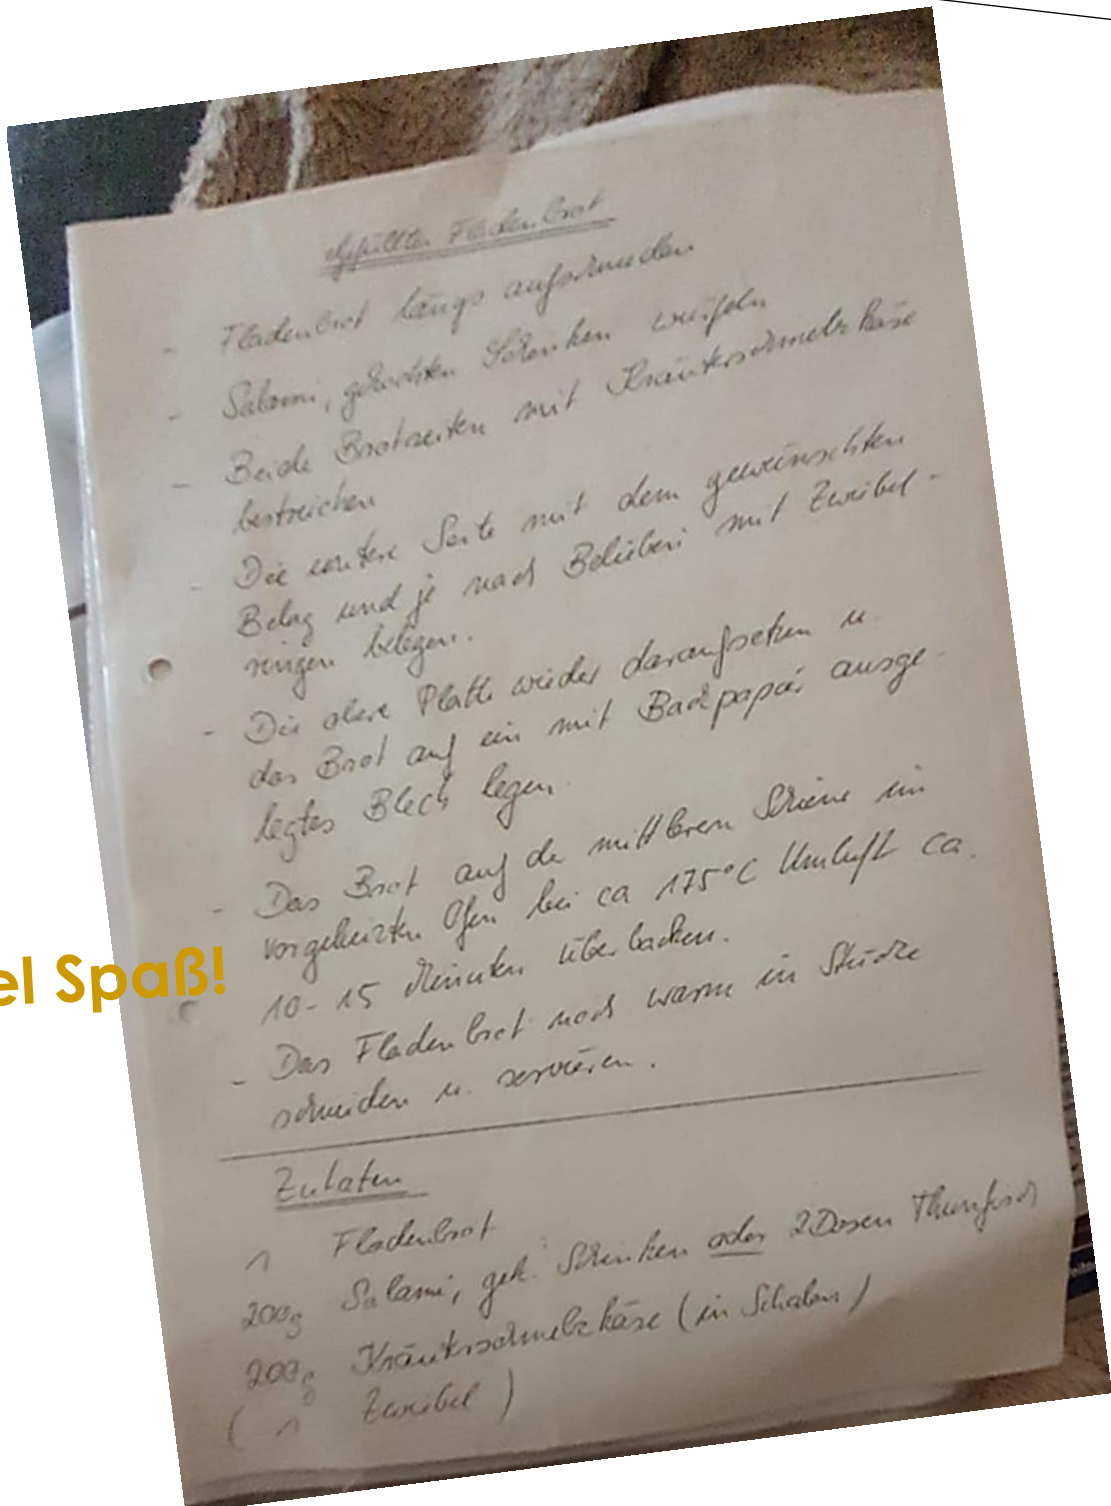 gefülltes Fladenbrot
- Fladenbrot längs aufschneiden
- Salami, gekochten Schinken würfeln
- Beide Brotseiten mit Kräuterschmelzkäse
bestreichen
- Die untere Seite mit dem gewünschten
Belag und je nach Belieben mit Zwiebel-
ringen belegen.
- Die obere Platte wieder daraufsetzen u.
das Brot auf ein mit Backpapier ausge-
legtes Blech legen.
- Das Brot auf der mittleren Schiene im
vorgeheizten Ofen bei ca 175°C Umluft ca.
10-15 Minuten überbacken.
- Das Fladenbrot noch warm in Stücke
schneiden u. servieren.
el Spaß!
Zutaten
1 Fladenbrot
200g Salami, gek. Schinken oder 2 Dosen Thunfisch
200g Kräuterschmelzkäse (in Schalen)
( 1 Zwiebel )